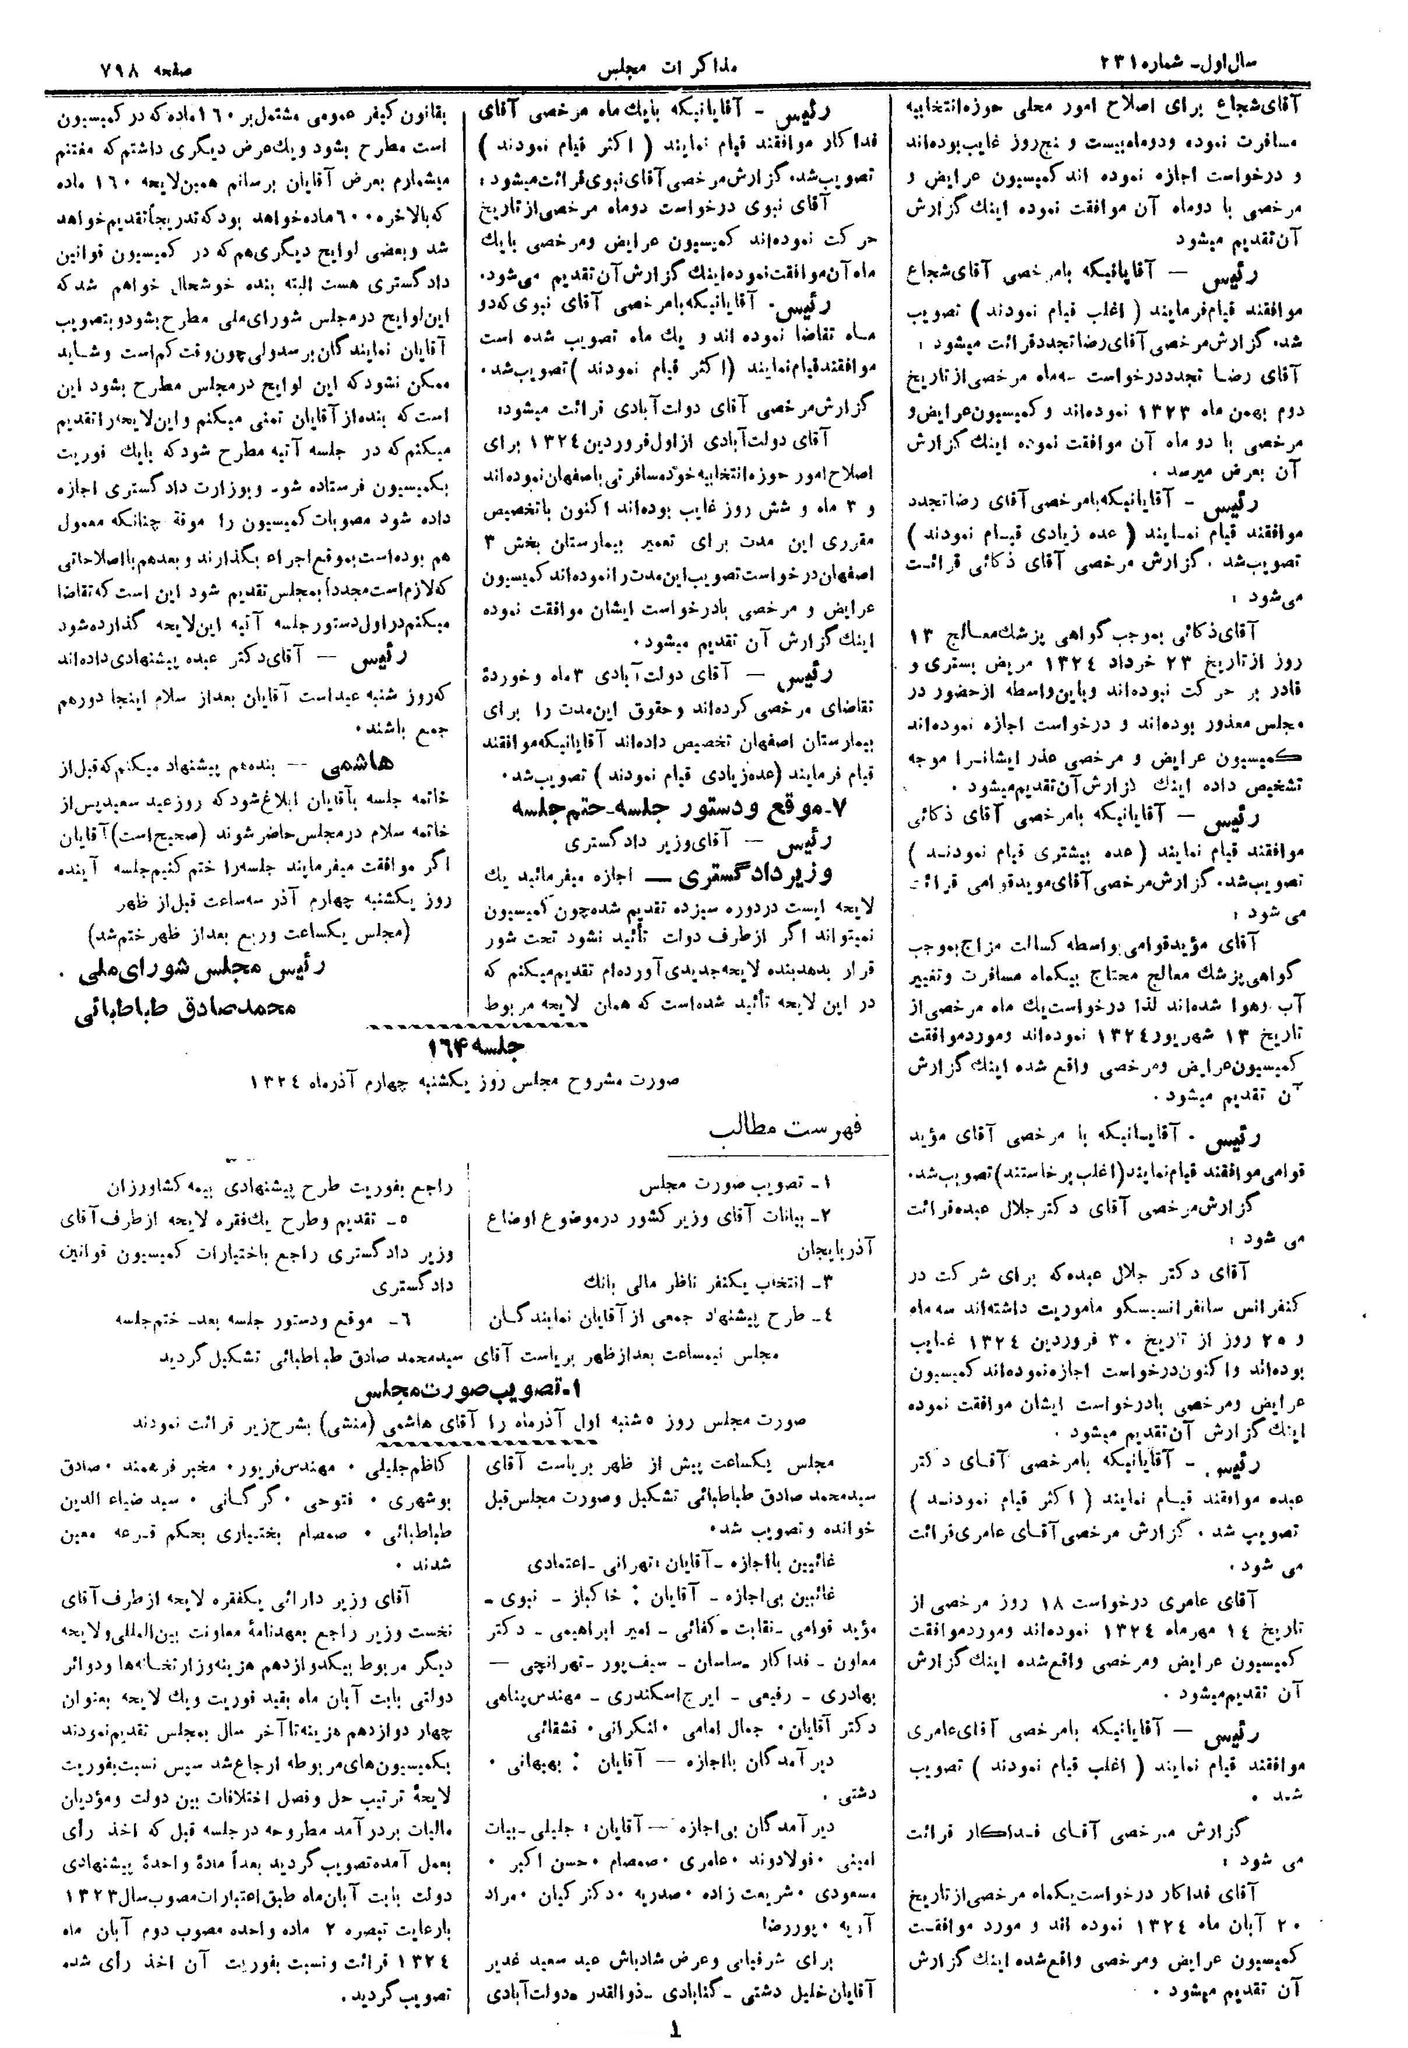 سال اول - شماره ۲۳۱
مذاکرات مجلس
صفحه ۷۹۸
آقای شجاع برای اصلاح امور محلی حوزه انتخابیه
مسافرت نموده ودوماه بیست و پنج روز غایب بوده‌اند
و درخواست اجازه نموده اند کمیسیون عرایض و
مرخصی با دوماه آن موافقت نموده اینك گزارش
آن تقدیم میشود
رئیس — آقایانیکه بامرخصی آقای شجاع
موافقند قیام فرمایند ( اغلب قیام نمودند ) تصویب
شد. گزارش مرخصی آقای رضا تجدد قرائت میشود :
آقای رضا تجدد درخواست سه ماه مرخصی از تاریخ
دوم بهمن ماه ۱۳۲۳ نموده‌اند و کمیسیون عرایض و
مرخصی با دو ماه آن موافقت نموده اینك گزارش
آن بعرض میرسد .
رئیس - آقایانیکه بامرخصی آقای رضا تجدد
موافقند قیام نمایند ( عده زیادی قیام نمودند )
تصویب شد . گزارش مرخصی آقای ذکائی قرائت
می‌شود :
آقای ذکائی بموجب گواهی پزشك معالج ۱۳
روز از تاریخ ۲۳ خرداد ۱۳۲٤ مریض بستری و
قادر بر حرکت نبوده‌اند وباین واسطه از حضور در
مجلس معذور بوده‌اند و درخواست اجازه نموده‌اند
کمیسیون عرایض و مرخصی عذر ایشانرا موجه
تشخیص داده اینك گزارش آن تقدیم میشود .
رئیس — آقایانیکه بامرخصی آقای ذکائی
موافقند قیام نمایند ( عده بیشتری قیام نمودند )
تصویب شد. گزارش مرخصی آقای مویدقوامی قرائت
می شود :
آقای مؤیدقوامی بواسطه کسالت مزاج بموجب
گواهی پزشك معالج محتاج بیکماه مسافرت وتغییر
آب وهوا شده‌اند لذا درخواست یك ماه مرخصی از
تاریخ ۱۳ شهریور ۱۳۲٤ نموده‌اند ومورد موافقت
کمیسیون عرایض ومرخصی واقع شده اینك گزارش
آن تقدیم میشود .
رئیس . آقایانیکه با مرخصی آقای مؤید
قوامی موافقند قیام نمایند (اغلب برخاستند) تصویب شد.
گزارش مرخصی آقای دکتر جلال عبده قرائت
می شود :
آقای دکتر جلال عبده که برای شرکت در
کنفرانس سانفرانسیسکو مأموریت داشته‌اند سه ماه
و ۲۵ روز از تاریخ ۳۰ فروردین ۱۳۲٤ غایب
بوده‌اند واکنون درخواست اجازه نموده‌اند کمیسیون
عرایض ومرخصی بادرخواست ایشان موافقت نموده
اینك گزارش آن تقدیم میشود .
رئیس - آقایانیکه بامرخصی آقای دکتر
عبده موافقند قیام نمایند ( اکثر قیام نمودند )
تصویب شد . گزارش مرخصی آقای عامری قرائت
می شود .
آقای عامری درخواست ۱۸ روز مرخصی از
تاریخ ۱٤ مهرماه ۱۳۲٤ نموده‌اند ومورد موافقت
کمیسیون عرایض ومرخصی واقع شده اینك گزارش
آن تقدیم میشود .
رئیس — آقایانیکه بامرخصی آقای عامری
موافقند قیام نمایند ( اغلب قیام نمودند ) تصویب
شد .
گزارش مرخصی آقای فداکار قرائت
می شود :
آقای فداکار درخواست یکماه مرخصی از تاریخ
۲۰ آبان ماه ۱۳۲٤ نموده اند و مورد موافقت
کمیسیون عرایض ومرخصی واقع شده اینك گزارش
آن تقدیم میشود .
رئیس - آقایانیکه بایك ماه مرخصی آقای
فداکار موافقند قیام نمایند ( اکثر قیام نمودند )
تصویب شد. گزارش مرخصی آقای نبوی قرائت میشود :
آقای نبوی درخواست دوماه مرخصی از تاریخ
حرکت نموده‌اند کمیسیون عرایض ومرخصی بایك
ماه آن موافقت نموده اینك گزارش آن تقدیم می‌شود.
رئیس. آقایانیکه بامرخصی آقای نبوی که دو
ماه تقاضا نموده اند و یك ماه تصویب شده است
موافقند قیام نمایند (اکثر قیام نمودند ) تصویب شد.
گزارش مرخصی آقای دولت آبادی قرائت میشود:
آقای دولت آبادی از اول فروردین ۱۳۲٤ برای
اصلاح امور حوزه انتخابیه خود مسافرتی باصفهان نموده‌اند
و ۳ ماه و شش روز غایب بوده‌اند اکنون باتخصیص
مقرری این مدت برای تعمیر بیمارستان بخش ۳
اصفهان درخواست تصویب این مدت را نموده‌اند کمیسیون
عرایض و مرخصی بادرخواست ایشان موافقت نموده
اینك گزارش آن تقدیم میشود.
رئیس — آقای دولت آبادی ۳ ماه وخوردهٔ
تقاضای مرخصی کرده‌اند وحقوق این مدت را برای
بیمارستان اصفهان تخصیص داده‌اند آقایانیکه موافقند
قیام فرمایند (عده زیادی قیام نمودند ) تصویب شد.
۷- موقع ودستور جلسه - ختم جلسه
رئیس — آقای وزیر دادگستری
وزیر دادگستری — اجازه میفرمائید یك
لایحه ایست دردوره سیزده تقدیم شده چون کمیسیون
نمیتواند اگر ازطرف دولت تأئید نشود تحت شور
قرار بدهد بنده لایحه جدیدی آورده‌ام تقدیم میکنم که
در این لایحه تأئید شده‌است که همان لایحه مربوط
بقانون کیفر عمومی مشتمل بر ۱٦۰ ماده که در کمیسیون
است مطرح بشود ویك عرض دیگری داشتم که مغتنم
میشمارم بعرض آقایان برسانم همین لایحه ۱٦۰ ماده
که بالاخره ٦۰۰ ماده خواهد بود که تدریجاً تقدیم خواهد
شد وبعضی لوایح دیگری هم که در کمیسیون قوانین
دادگستری هست البته بنده خوشحال خواهم شد که
این لوایح در مجلس شورای ملی مطرح بشود و بتصویب
آقایان نمایندگان برسد ولی چون وقت کم است و شاید
ممکن نشود که این لوایح در مجلس مطرح بشود این
است که بنده از آقایان تمنی میکنم و این لایحه را تقدیم
میکنم که در جلسه آتیه مطرح شود که بایك فوریت
بکمیسیون فرستاده شود وبوزارت دادگستری اجازه
داده شود مصوبات کمیسیون را موقة چنانکه معمول
هم بوده‌است بموقع اجراء بگذارند و بعد هم بااصلاحاتی
که لازم است مجدداً بمجلس تقدیم شود این است که تقاضا
میکنم در اول دستور جلسه آتیه این لایحه گذارده شود
رئیس — آقای دکتر عبده پیشنهادی داده‌اند
که روز شنبه عید است آقایان بعد از سلام اینجا دورهم
جمع باشند.
هاشمی — بنده هم پیشنهاد میکنم که قبل از
خاتمه جلسه بآقایان ابلاغ شود که روز عید سعید پس از
خاتمه سلام در مجلس حاضر شوند (صحیح است) آقایان
اگر موافقت میفرمایند جلسه را ختم کنیم جلسه آینده
روز یکشنبه چهارم آذر سه ساعت قبل از ظهر
(مجلس یکساعت وربع بعد از ظهر ختم شد)
رئیس مجلس شورای ملی .
محمد صادق طباطبائی
جلسه ۱۶۴
صورت مشروح مجلس روز یکشنبه چهارم آذرماه ۱۳۲٤
فهرست مطالب
۱- تصویب صورت مجلس
۲- بیانات آقای وزیر کشور درموضوع اوضاع
آذربایجان
۳- انتخاب یکنفر ناظر مالی بانك
٤- طرح پیشنهاد جمعی از آقایان نمایندگان
راجع بفوریت طرح پیشنهادی بیمه کشاورزان
۵- تقدیم وطرح یك فقره لایحه ازطرف آقای
وزیر دادگستری راجع باختیارات کمیسیون قوانین
دادگستری
٦- موقع ودستور جلسه بعد- ختم جلسه
مجلس نیمساعت بعد از ظهر بریاست آقای سیدمحمد صادق طباطبائی تشکیل گردید
۱- تصویب صورت مجلس
صورت مجلس روز ۵ شنبه اول آذرماه را آقای هاشمی (منشی) بشرح زیر قرائت نمودند
مجلس یکساعت پیش از ظهر بریاست آقای
سیدمحمد صادق طباطبائی تشکیل وصورت مجلس قبل
خوانده وتصویب شد.
غائبین بااجازه - آقایان : تهرانی - اعتمادی
غائبین بی اجازه - آقایان : خاکباز - نبوی -
مؤید قوامی - نقابت - کفائی - امیر ابراهیمی - دکتر
معاون - فداکار - ساسان - سیف پور - تهرانچی —
بهادری - رفیعی - ایرج اسکندری - مهندس پناهی
دکتر آقایان . جمال امامی . لنکرانی . قشقائی
دیرآمدگان بااجازه — آقایان : بهبهانی .
دشتی .
دیرآمدگان بی اجازه — آقایان : جلیلی - بیات
امینی . فولادوند . عامری . صمصام . حسن اکبر .
مسعودی . شریعت زاده . صدریه . دکتر کیان . مراد
آریه . پوررضا
برای شرفیابی وعرض شادباش عید سعید غدیر
آقایان خلیل دشتی - گنابادی - ذوالقدر - دولت آبادی
کاظم جلیلی . مهندس فریور . مخبر فرهمند . صادق
بوشهری . فتوحی . گرگانی . سید ضیاء الدین
طباطبائی . صمصام بختیاری بحکم قرعه معین
شدند .
آقای وزیر دارائی یکفقره لایحه ازطرف آقای
نخست وزیر راجع بعهدنامهٔ معاونت بین‌المللی ولایحه
دیگر مربوط بیکدوازدهم هزینه وزارتخانه‌ها ودوائر
دولتی بابت آبان ماه بقید فوریت ویك لایحه بعنوان
چهار دوازدهم هزینه تا آخر سال بمجلس تقدیم نمودند
بکمیسیون‌های مربوطه ارجاع شد سپس نسبت بفوریت
لایحهٔ ترتیب حل وفصل اختلافات بین دولت ومؤدیان
مالیات بردرآمد مطروحه در جلسه قبل که اخذ رأی
بعمل آمده تصویب گردید بعداً مادهٔ واحدهٔ پیشنهادی
دولت بابت آبان ماه طبق اعتبارات مصوب سال ۱۳۲۳
بارعایت تبصره ۲ ماده واحده مصوب دوم آبان ماه
۱۳۲٤ قرائت ونسبت بفوریت آن اخذ رأی شده
تصویب گردید.
۱